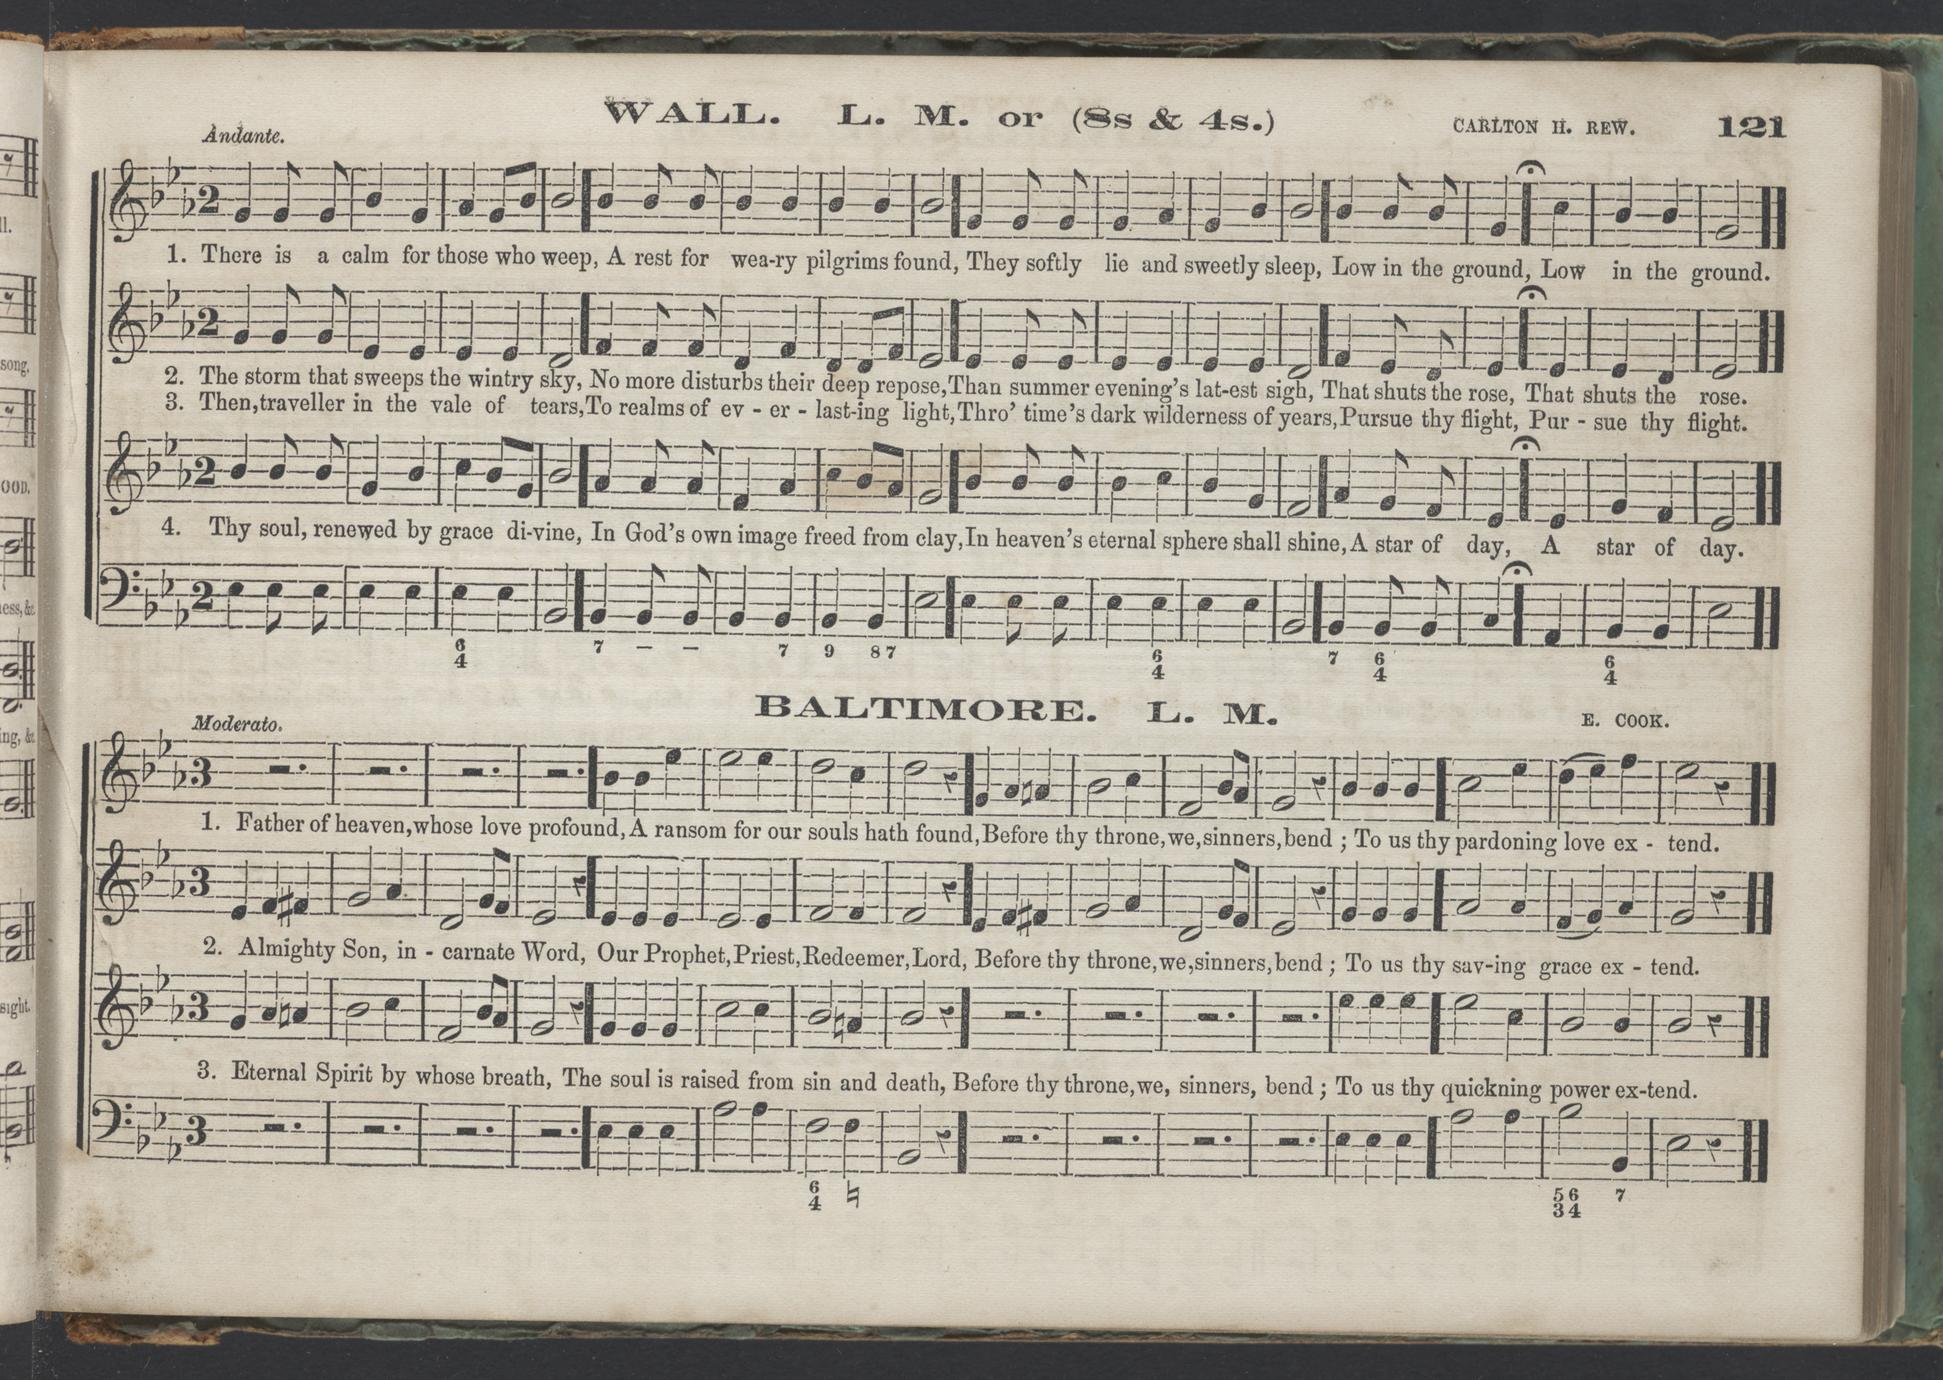 WALL. L. M. or (8s & 4s.)
CARLTON H. REW.
121
Andante.
2
1. There is a calm for those who weep, A rest for wea-ry pilgrims found, They softly lie and sweetly sleep, Low in the ground, Low in the ground.
2
2. The storm that sweeps the wintry sky, No more disturbs their deep repose, Than summer evening's lat-est sigh, That shuts the rose, That shuts the rose.
3. Then, traveller in the vale of tears, To realms of ev - er - last-ing light, Thro' time's dark wilderness of years, Pursue thy flight, Pur - sue thy flight.
2
4. Thy soul, renewed by grace di-vine, In God's own image freed from clay, In heaven's eternal sphere shall shine, A star of day, A star of day.
2
6 7 – – 7 9 8 7 6 7 6 6
4 4 4 4
BALTIMORE. L. M.
E. COOK.
Moderato.
3
1. Father of heaven, whose love profound, A ransom for our souls hath found, Before thy throne, we, sinners, bend ; To us thy pardoning love ex - tend.
3
2. Almighty Son, in - carnate Word, Our Prophet, Priest, Redeemer, Lord, Before thy throne, we, sinners, bend ; To us thy sav-ing grace ex - tend.
3
3. Eternal Spirit by whose breath, The soul is raised from sin and death, Before thy throne, we, sinners, bend ; To us thy quickning power ex-tend.
3
6 ♮ 5 6 7
4 3 4
ll.
song,
OOD.
ness, &c.
ing, &c.
sight.